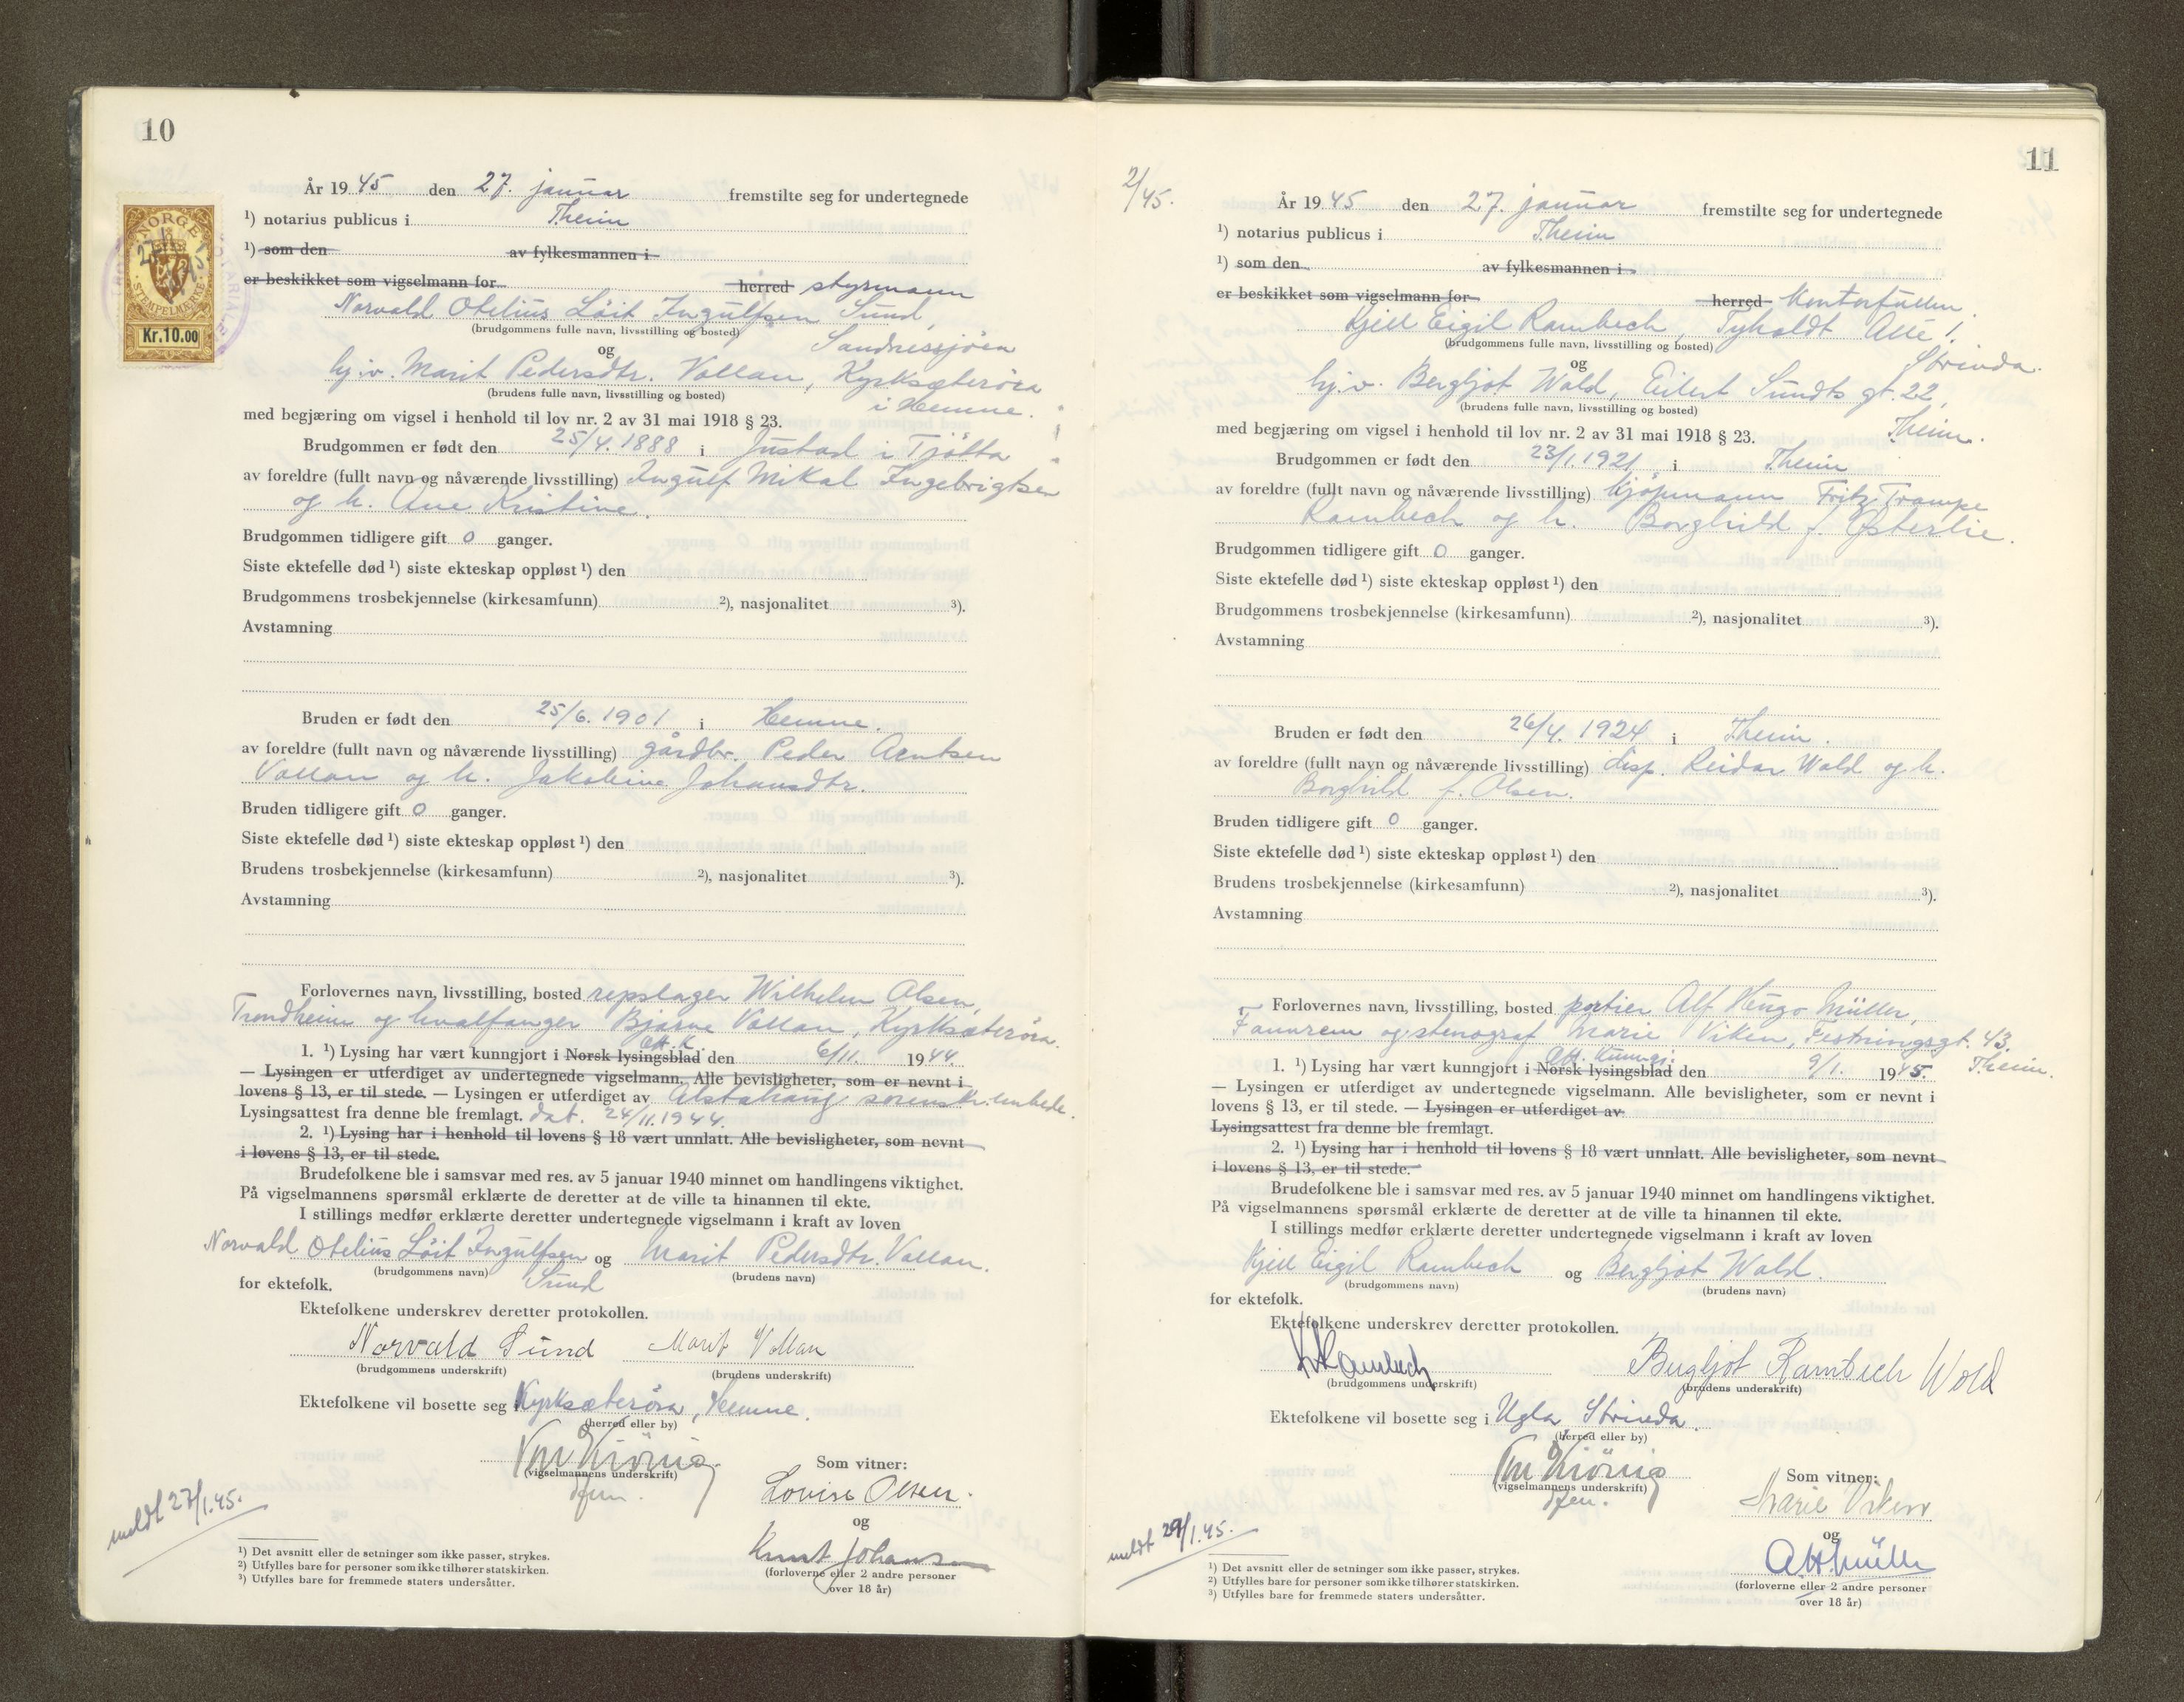 10
År 1945 den 27. januar fremstilte seg for undertegnede
¹) notarius publicus i Theim
¹) som den av fylkesmannen i
er beskikket som vigselmann for herred styrmann
Norvald Otelius Löit Ingulfsen Sund,
(brudgommens fulle navn, livsstilling og bosted)
Sandnessjöen
og
hj.v. Marit Pedersdtr. Vollan, Kyrksæteröra
(brudens fulle navn, livsstilling og bosted)
i Hemne.
med begjæring om vigsel i henhold til lov nr. 2 av 31 mai 1918 § 23.
Brudgommen er født den 25/4. 1888 i Justad i Tjötta
av foreldre (fullt navn og nåværende livsstilling) Ingulf Mikal Ingebrigtsen
og h. Ane Kristine.
Brudgommen tidligere gift 0 ganger.
Siste ektefelle død ¹) siste ekteskap oppløst ¹) den
Brudgommens trosbekjennelse (kirkesamfunn) ²), nasjonalitet ³).
Avstamning
Bruden er født den 25/6. 1901 i Hemne.
av foreldre (fullt navn og nåværende livsstilling) gårdbr. Peder Arntsen
Vollan og h. Jakobine Johansdtr.
Bruden tidligere gift 0 ganger.
Siste ektefelle død ¹) siste ekteskap oppløst ¹) den
Brudens trosbekjennelse (kirkesamfunn) ²), nasjonalitet ³).
Avstamning
Forlovernes navn, livsstilling, bosted repslager Wilhelm Olsen,
Trondheim og hvalfanger Bjarne Vollan, Kyrksæteröra.
Off. k.
1. ¹) Lysing har vært kunngjort i Norsk lysingsblad den 6/11. 1944.
— Lysingen er utferdiget av undertegnede vigselmann. Alle bevisligheter, som er nevnt i
lovens § 13, er til stede. — Lysingen er utferdiget av Alstahaug sorenskr.embede.
Lysingsattest fra denne ble fremlagt. dat. 24/11.1944.
2. ¹) Lysing har i henhold til lovens § 18 vært unnlatt. Alle bevisligheter, som nevnt
i lovens § 13, er til stede.
Brudefolkene ble i samsvar med res. av 5 januar 1940 minnet om handlingens viktighet.
På vigselmannens spørsmål erklærte de deretter at de ville ta hinannen til ekte.
I stillings medfør erklærte deretter undertegnede vigselmann i kraft av loven
Norvald Otelius Löit Ingulfsen og Marit Pedersdtr. Vollan.
(brudgommens navn) Sund (brudens navn)
for ektefolk.
Ektefolkene underskrev deretter protokollen.
Norvald Sund Marit Vollan
(brudgommens underskrift) (brudens underskrift)
Ektefolkene vil bosette seg i Kyrksæteröra, Hemne.
(herred eller by)
(vigselmannens underskrift)
Som vitner:
Lovise Olsen.
og
Knut Johansen
(forloverne eller 2 andre personer
over 18 år)
meldt 27/1.45.
¹) Det avsnitt eller de setninger som ikke passer, strykes.
²) Utfylles bare for personer som ikke tilhører statskirken.
³) Utfylles bare for fremmede staters undersåtter.
NORGE
STEMPELMERKE
Kr.10.00
11
2/45.
År 1945 den 27. januar fremstilte seg for undertegnede
¹) notarius publicus i Theim
¹) som den av fylkesmannen i
er beskikket som vigselmann for herred Kontorfullm.
Kjell Eigil Rambech, Tyholdt Alle 1.
(brudgommens fulle navn, livsstilling og bosted)
Strinda.
og
hj.v. Bergljot Wold, Eilert Sundts gt. 22,
(brudens fulle navn, livsstilling og bosted)
Theim.
med begjæring om vigsel i henhold til lov nr. 2 av 31 mai 1918 § 23.
Brudgommen er født den 23/1.1921 i Theim
av foreldre (fullt navn og nåværende livsstilling) kjöpmann Fritz Trampe
Rambech og h. Borghild f. Østerlie.
Brudgommen tidligere gift 0 ganger.
Siste ektefelle død ¹) siste ekteskap oppløst ¹) den
Brudgommens trosbekjennelse (kirkesamfunn) ²), nasjonalitet ³).
Avstamning
Bruden er født den 26/4. 1924 i Theim.
av foreldre (fullt navn og nåværende livsstilling) disp. Reidar Wold og h.
Borghild f. Olsen.
Bruden tidligere gift 0 ganger.
Siste ektefelle død ¹) siste ekteskap oppløst ¹) den
Brudens trosbekjennelse (kirkesamfunn) ²), nasjonalitet ³).
Avstamning
Forlovernes navn, livsstilling, bosted portier Alf Hugo Müller,
Fannrem og stenograf Marie Viken, Festningsgt. 43,
Theim.
Off. kunngj.
1. ¹) Lysing har vært kunngjort i Norsk lysingsblad den 9/1. 1945.
— Lysingen er utferdiget av undertegnede vigselmann. Alle bevisligheter, som er nevnt i
lovens § 13, er til stede. — Lysingen er utferdiget av
Lysingsattest fra denne ble fremlagt.
2. ¹) Lysing har i henhold til lovens § 18 vært unnlatt. Alle bevisligheter, som nevnt
i lovens § 13, er til stede.
Brudefolkene ble i samsvar med res. av 5 januar 1940 minnet om handlingens viktighet.
På vigselmannens spørsmål erklærte de deretter at de ville ta hinannen til ekte.
I stillings medfør erklærte deretter undertegnede vigselmann i kraft av loven
Kjell Eigil Rambech og Bergljot Wold.
(brudgommens navn) (brudens navn)
for ektefolk.
Ektefolkene underskrev deretter protokollen.
K Rambech Bergljot Rambech Wold
(brudgommens underskrift) (brudens underskrift)
Ektefolkene vil bosette seg i Ugla Strinda.
(herred eller by)
(vigselmannens underskrift)
Som vitner:
Marie Viken
og
A H Müller
(forloverne eller 2 andre personer
over 18 år)
meldt 29/1.45.
¹) Det avsnitt eller de setninger som ikke passer, strykes.
²) Utfylles bare for personer som ikke tilhører statskirken.
³) Utfylles bare for fremmede staters undersåtter.